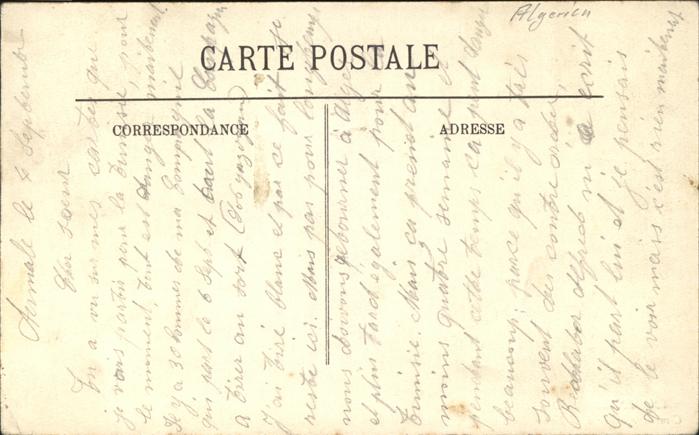 Algerien
CARTE POSTALE
CORRESPONDANCE
ADRESSE
Aumale le 4 Septembre
Cher Soeur
Tu a vu sur mes cartes que
je vais partir pour la Tunisie, pour
le moment, tout est changer maintenant
Il y a 30 hommes de ma Compagnie
qui part le 6 Sept et tout la
a tirer au sort
J'ai tiré blanc et par ce fait je
reste ici. Mais pas pour longtemps
nous devons retourner à Alger
et plus tard également pour
Tunisie. Mais ça prendt au
moins quatre semaine et
pendant cette temps ça peut changer
beaucoup; parce qu'il y a très
souvent des contre ordre,
Alfred m'a écrit
qu'il part lui et je pensais
de le voir mais c'est rien maintenant